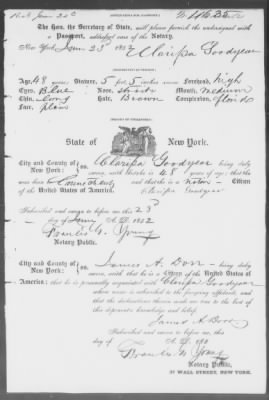 To the Hon. the Secretary of State, will please furnish the undersigned with
a Passport, addressed care of the Notary.
New York, June 23d 1852 Clarissa Goodyear
Age, 48 years Stature, 5 feet, 5 inches Forehead, high
Eyes, Blue Nose, Mouth, medium
Chin, Long Hair, Brown Complexion, florid
Face, plain
State of New York.
City and County of New York: } ss. Clarissa Goodyear being duly
sworn, saith that she is 48 years of age; that she
was born in Connecticut and that she is a native Citizen
of the United States of America.
Clarissa Goodyear
Subscribed and sworn to before me this 23d
day of June A.D. 1852
Francis G. Young
Notary Public.
City and County of New York: } ss. James A. Dorr being duly
sworn, saith that he is a Citizen of the United States of
America; that he is personally acquainted with Clarissa Goodyear
whose name is subscribed to the foregoing affidavit, and
that the declarations therein made are true to the best of this
deponent's knowledge and belief.
James A Dorr
Subscribed and sworn to before me, this
day of A.D. 185
Francis G. Young
Notary Public,
WALL STREET, NEW YORK.